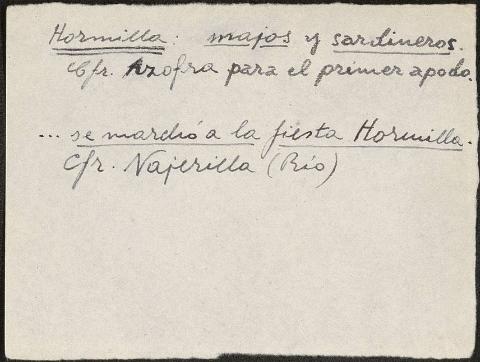 Hormilla: majos y sardineros.
Cfr. Azofra para el primer apodo.
... se marchó a la fiesta Hormilla.
Cfr. Najerilla (Río)